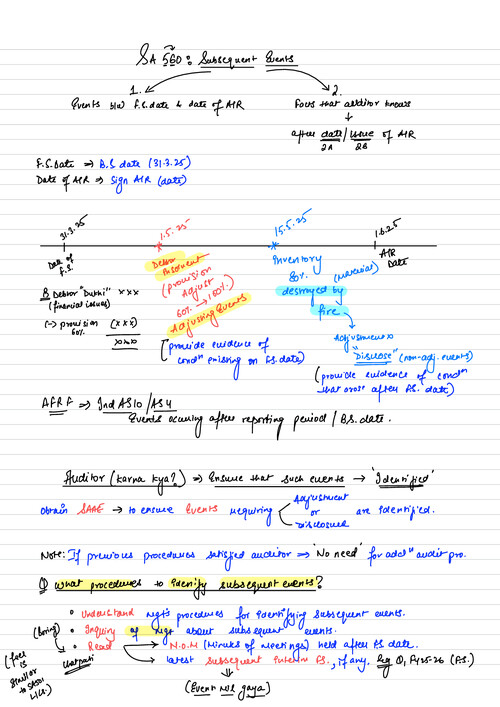 SA 560: Subsequent Events
1.
2.
Events b/w F.S. date & date of AIR
Facts that auditor knows
after date / issue of AIR
2A 2B
F.S. Date ⇒ B.S date (31.3.25)
Date of AIR ⇒ Sign AIR (date)
31.3.25
1.5.25
15.5.25
1.6.25
Date of F.S.
Debtor Insolvent
Inventory
AIR Date
(provision Adjust
80% (material)
60% → 100%)
destroyed by fire
Adjusting Events
B Debtor "Dukhi" xxx
(financial issues)
(-) provision (xxx)
60%
xxx
Adjustment x
"Disclose" (non-adj. events)
(provide evidence of condⁿ existing on F.S. date)
(provide evidence of condⁿ that arose after F.S. date)
AFRF ⇒ Ind AS 10 / AS 4
Events occuring after reporting period / B.S. date.
Auditor (karna kya?) ⇒ Ensure that such events → 'Identified'
Obtain SAAE → to ensure Events requiring Adjustment or Disclosure are identified.
Note: If previous procedures satisfied auditor ⇒ 'No need' for addⁿ audit pro.
Q What procedures to identify subsequent events?
• Understand mgt's procedures for identifying subsequent events.
• Inquiry of mgt about subsequent events.
(boring)
• Read → N.O.M (Minutes of Meetings) held after F.S. date.
→ latest Subsequent Interim F.S., if any. Eg Q1 FY 25-26 (F.S.)
(Event mil gaya)